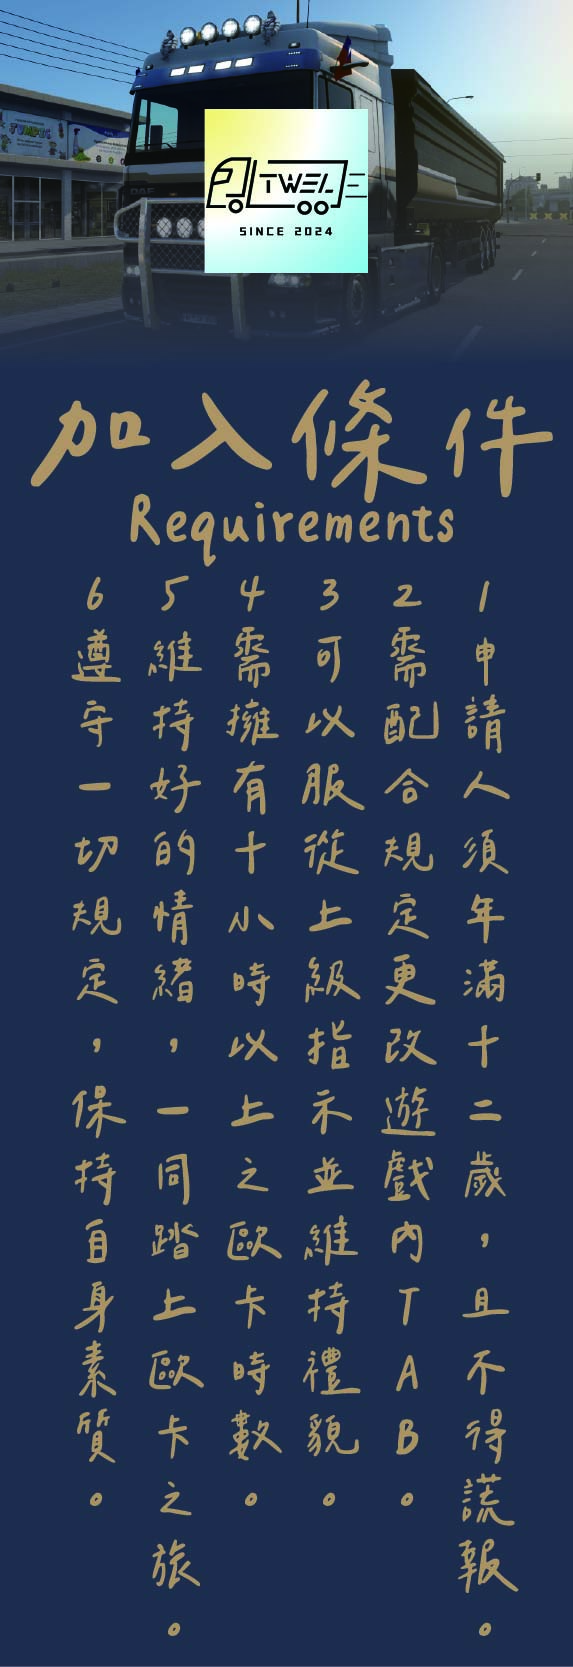 TUMBUG
DAF
TWEL
SINCE 2024
加入條件
Requirements
1申請人須年滿十二歲，且不得謊報。
2需配合規定更改遊戲內TAB。
3可以服從上級指示並維持禮貌。
4需擁有十小時以上之歐卡時數。
5維持好的情緒，一同踏上歐卡之旅。
6遵守一切規定，保持自身素質。